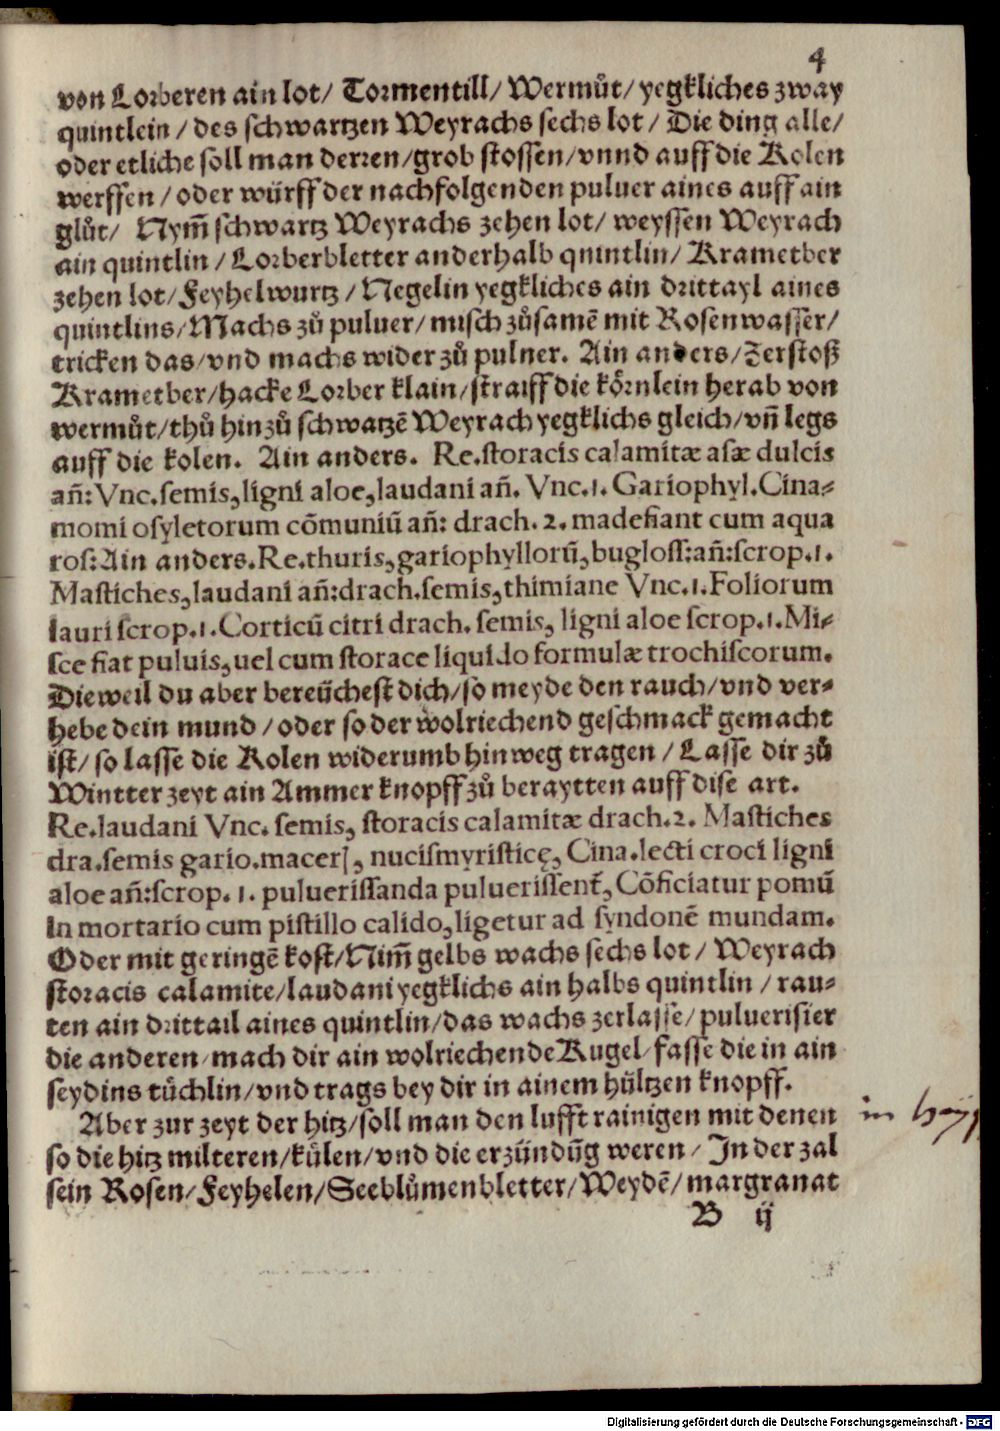 4
von Lorberen ain lot/ Tormentill/ Wermůt/ yegkliches zway
quintlein / des schwartzen Weyrachs sechs lot / Die ding alle/
oder etliche soll man derren/grob stossen/vnnd auff die Kolen
werffen / oder würff der nachfolgenden puluer aines auff ain
glůt/ Nym̃ schwartz Weyrachs zehen lot/ weyssen Weyrach
ain quintlin / Lorberbletter anderhalb quintlin/ Krametber
zehen lot/ Feyhelwurtz / Negelin yegkliches ain drittayl aines
quintlins/ Machs zů puluer/ misch zůsamẽ mit Rosenwasser/
tricken das/vnd machs wider zů pulner. Ain anders/Zerstoß
Krametber/hacke Lorber klain/straiff die körnlein herab von
wermůt/thů hinzů schwatzẽ Weyrach yegklichs gleich/vñ legs
auff die kolen. Ain anders. Re.storacis calamitæ asæ dulcis
añ: Vnc.semis,ligni aloe,laudani añ. Vnc.1. Gariophyl.Cina⸗
momi osyletorum cõmuniũ añ: drach.2. madefiant cum aqua
ros: Ain anders.Re.thuris,gariophyllorũ,bugloss:añ:scrop.1.
Mastiches,laudani añ:drach.semis,thimiane Vnc.1.Foliorum
lauri scrop.1.Corticũ citri drach. semis, ligni aloe scrop.1.Mi⸗
sce fiat puluis,uel cum storace liquido formulæ trochiscorum.
Dieweil du aber bereüchest dich/so meyde den rauch/vnd ver⸗
hebe dein mund / oder so der wolriechend geschmack gemacht
ist/ so lasse die Kolen widerumb hinweg tragen / Lasse dir zů
Wintter zeyt ain Ammer knopff zů beraytten auff dise art.
Re.laudani Vnc. semis, storacis calamitæ drach.2. Mastiches
dra.semis gario.macerſ, nucismyristicę, Cina.lecti croci ligni
aloe añ:scrop. 1. puluerissanda puluerissent̃, Cõficiatur pomũ
in mortario cum pistillo calido,ligetur ad syndonẽ mundam.
Oder mit geringẽ kost/Nim̃ gelbs wachs sechs lot/ Weyrach
storacis calamite/laudani yegklichs ain halbs quintlin / rau⸗
ten ain drittail aines quintlin/das wachs zerlasse/ puluerisier
die anderen/mach dir ain wolriechende Kugel/fasse die in ain
seydins tůchlin/vnd trags bey dir in ainem hültzen knopff.
Aber zur zeyt der hitz/soll man den lufft rainigen mit denen
so die hitz milteren/külen/vnd die erzündũg weren/ In der zal
sein Rosen/Feyhelen/Seeblůmenbletter/Weydẽ/margranat
B ij
in
Digitalisierung gefördert durch die Deutsche Forschungsgemeinschaft - DFG